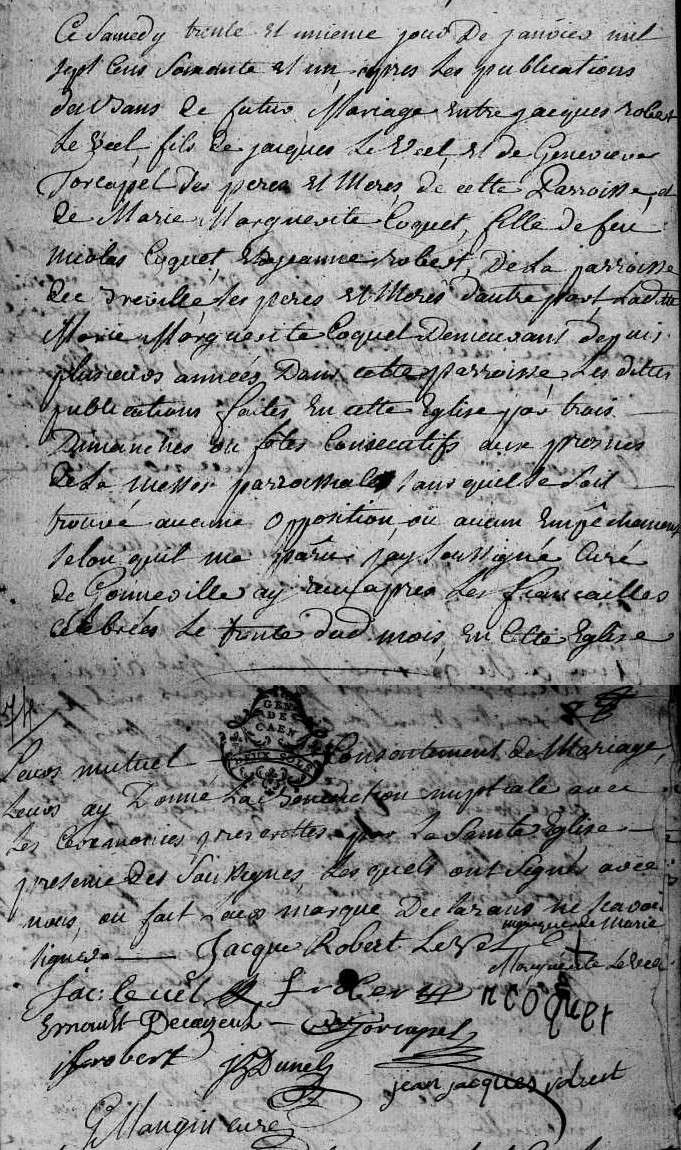 Ce Samedy trente et unieme jour De janvier mil
sept Cens Soixante et un, apres Les publications
des bans de futur Mariage entre jacques robert
Le Veel, fils de jacques Le Veel, et de Genevieve
Torcapel Ses peres et Meres, de cette Parroisse, et
de Marie Marguerite Coquet, fille de feu
nicolas Coquet, et de jeanne robert, De La parroisse
de reville Ses peres et Meres d'autre part, Ladite
Marie Marguerite Coquet Demeurant depuis
plusieurs années Dans cette parroisse, Les dites
publications faites en cette Eglise par trois
Dimanches ou fêtes Consecutifs aux prosnes
de La messe parroissiale Sans quil se Soit
trouvé aucune opposition, ou aucun Empêchement
Selon quil ma pâru, jay Soussigné Curé
de Gonneville ay reçu apres Les fiancailles
célébrées Le trente dud. mois, en Cette Eglise
74
Leurs mutuel Consentement de Mariage,
GEN DE CAEN
DEUX SOLS
Leurs ay Donné La Bénédiction nuptiale avec
Les Ceremonies prescrittes par La Sainte Eglise
présence Des Soussignés, Les quels ont Signés avec
nous, ou fait Leurs marque Declarans ne Scavoir
signer. Jacque Robert Le Vel
marque de Marie
Marguerite Le Veel
Jac: le vêl n coquet
Torcapel
robert Dunel jean jacques
Mangin curé